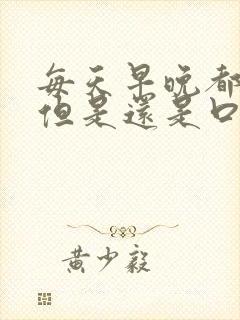 每天早晚都
但是還是口
黃少毅